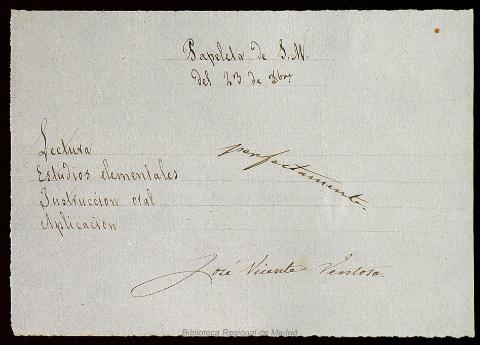 Papeleta de S. M.
del 23 de Dbre
Lectura
Estudios elementales
Instruccion oral
Aplicacion
perfectamente.
José Vicente Ventosa.
Biblioteca Regional de Madrid